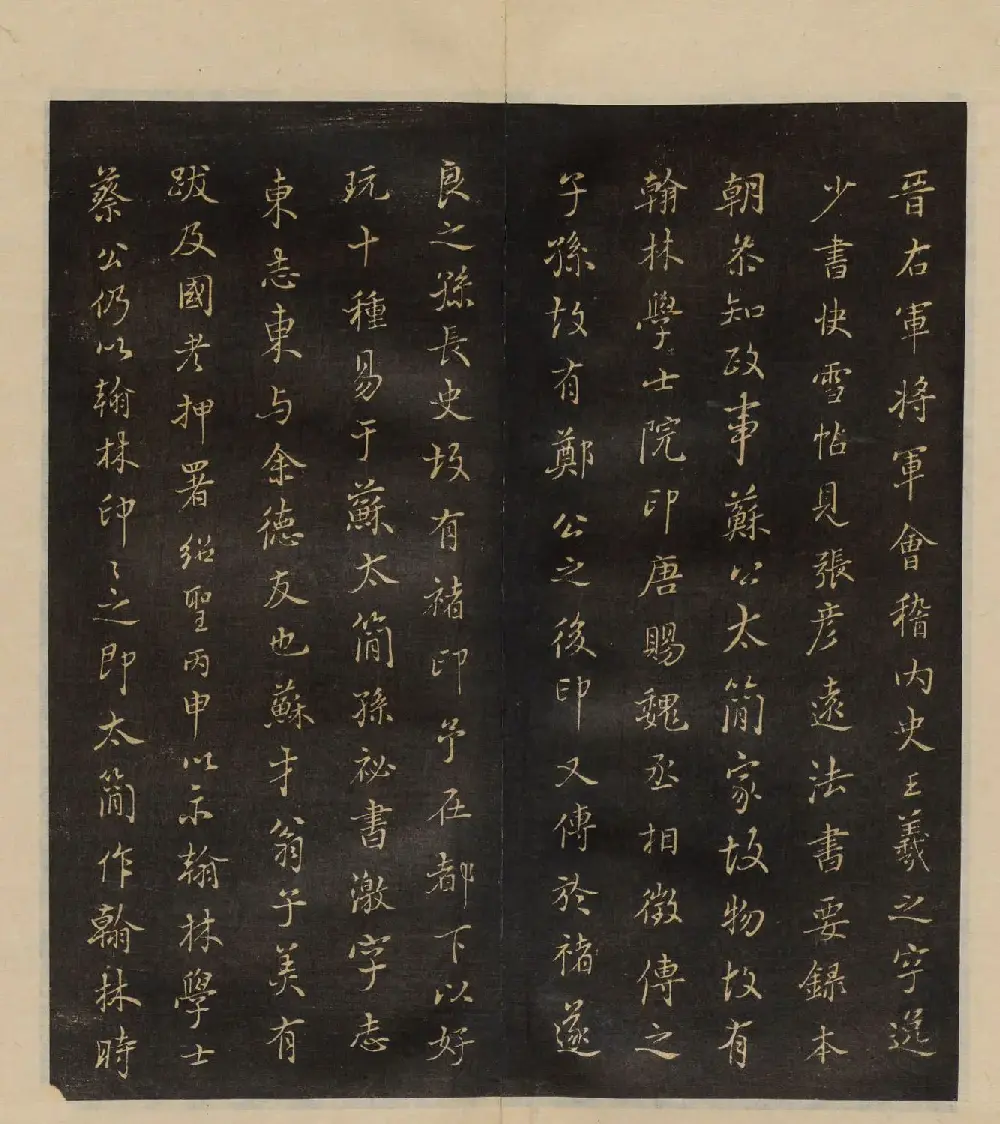 晉右軍將軍會稽內史王羲之字逸
少書快雪帖見張彦遠法書要錄本
朝叅知政事蘇公太簡家故物故有
翰林學士院印唐賜魏丞相徵傳之
子孫故有鄭公之後印又傳於褚遂
良之孫長史故有褚印予在都下以好
玩十種易于蘇太簡孫祕書激字志
東志東与余德友也蘇才翁子美有
跋及國老押署紹聖丙申以示翰林學士
蔡公仍以翰林印印之即太簡作翰林時